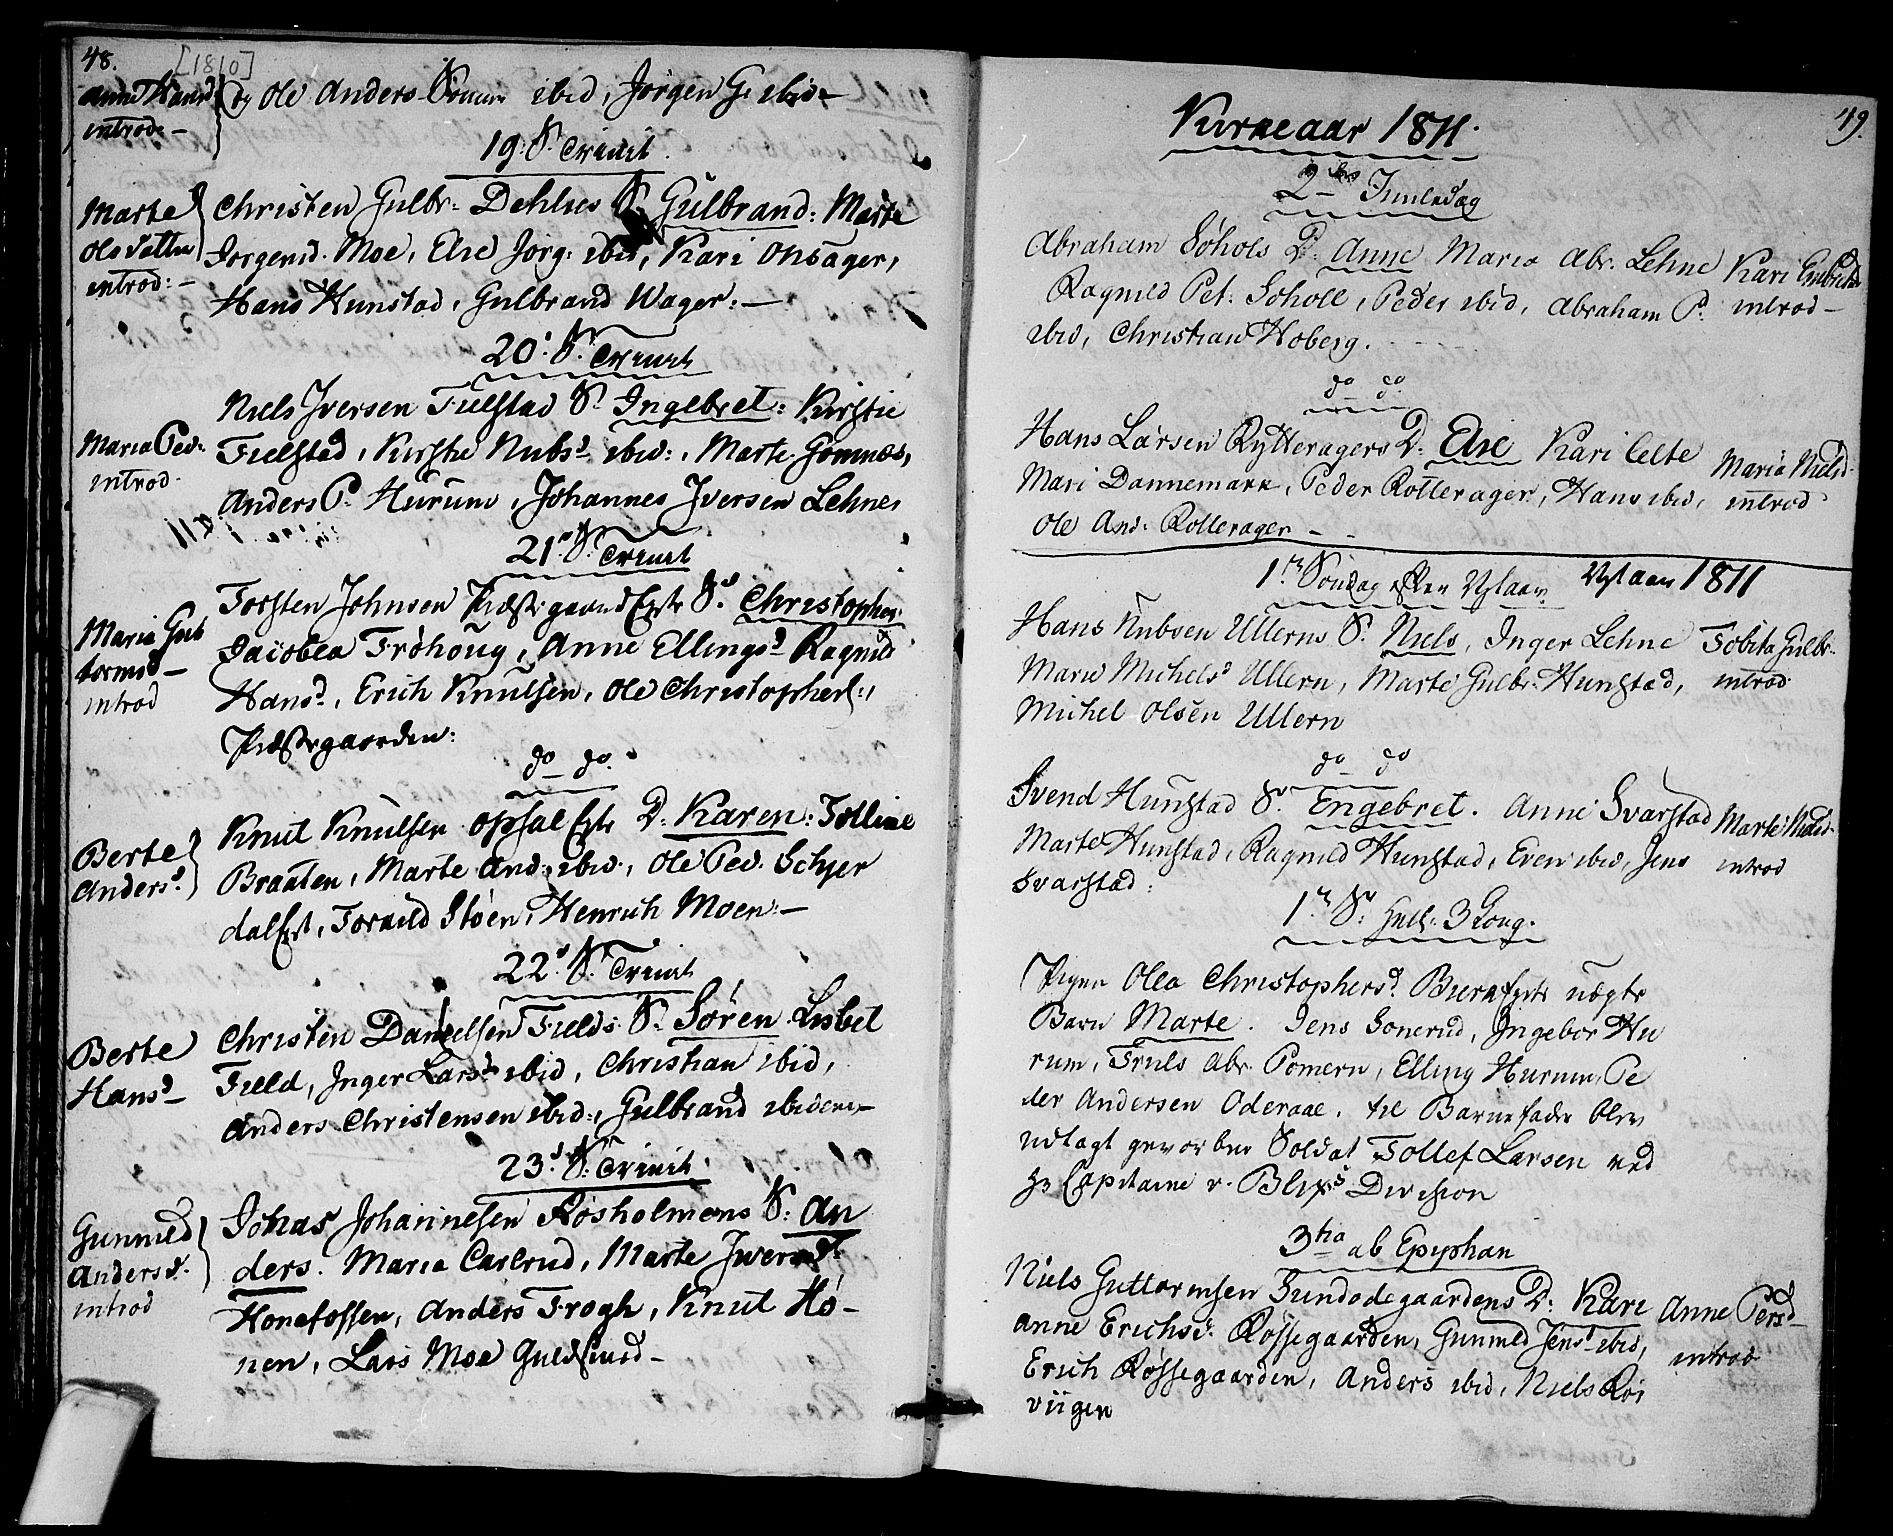 48.
[1810]
Anne Hansd
introd: -
og Ole Anders Struum ibid, Jörgen G. ibid -
19. S. Trinit.
Marte
Olsdatter
introd: -
Christen Gulbr: Dehlies S. Gulbrand: Marte
Jorgensd. Moe, Else Jorg: ibid, Kari Onsager,
Hans Hunstad, Gulbrand Wager: -
20. S. Trinit
Maria Ped:
introd.
Niels Iversen Fielstad S. Ingebret: Kirstie
Fielstad, Kirstie Nubsd ibid:, Marte Gomnæs,
Anders P. Hurum, Johannes Iversen Lehne,
21. S. Trinit
Maria Gut
tormsd -
introd
Torsten Johnsen Præstegaard Eyets S. Christopher
Jacobea Fröhoug, Anne Ellingsd Ragnild
Hansd, Erich Knutsen, Ole Christophers:,
Præstegaarden:
do do.
Berte
Andersd.
Knut Knutsen Opsal Eyets D. Karen: Tolline
Braaten, Marte And: ibid, Ole Ped. Schjer
dal Eyet, Toraild Stöen, Henrich Moen: -
22. S. Trinit
Berte
Hansd -
Christen Danielsen Fields S. Sören Lisbet
Field, Inger Larsd ibid, Christian ibid,
Anders Christensen ibid:, Gulbrand ibidem -
23. S. Trinit.
Gunnild
Andersd.
introd
Johas Johannesen Rosholmens S. An
ders. Maria Carlrud, Marte Iversd
Honefossen, Anders Frogh, Knut Hö-
nen, Lars Moe Guldsmed -
49.
Kirkeaar 1811.
2den Juuledag
Abraham Söhols D. Anne Maria Abr. Lehne
Kari Engebretsd
Ragnild Pet: Soholl, Peder ibid, Abraham P.
introd -
ibid, Christian Hoberg.
do do
Hans Larsen Rytteragers D. Else Kari Celte
Maria Nielsd.
Mari Dannemark, Peder Rotterager, Hans ibid,
introd
Ole And: Rotterager - -
1ste Söndag efter Nytaar. Nytaar 1811
Hans Nubsen Ullerns S. Niels, Inger Lehne
Tobita Gulbr.
Marie Michelsd Ullern, Marte Gulbr: Hunstad,
introd
Michel Olsen Ullern
do do
Svend Hunstad S. Engebret. Anne Svarstad
Marte Nielsd.
Marte Hunstad, Ragnild Hunstad, Even ibid, Jens
introd
Svarstad:
1ste S. Hell: 3 Kong.
Pigen Olea Christophersd. Bieræ Eyets uægte
Barn Marte. Jens Sonerud, Ingebor Hu
rum, Truls Abr. Pomern, Elling Hurum, Pe
der Andersen Oderaae. Til Barnefader blev
udlagt gevorben Soldat Tollef Larsen ved
Hr Capitaine v. Blix's Division
3tia ab Epiphan
Niels Guttormsen Sundødegaardens D: Kari
Anne Persd -
Anne Erichsd. Rössegaarden, Gunnild Jensd ibid,
introd
Erich Rössegaarden, Anders ibid, Niels Rös
viigen